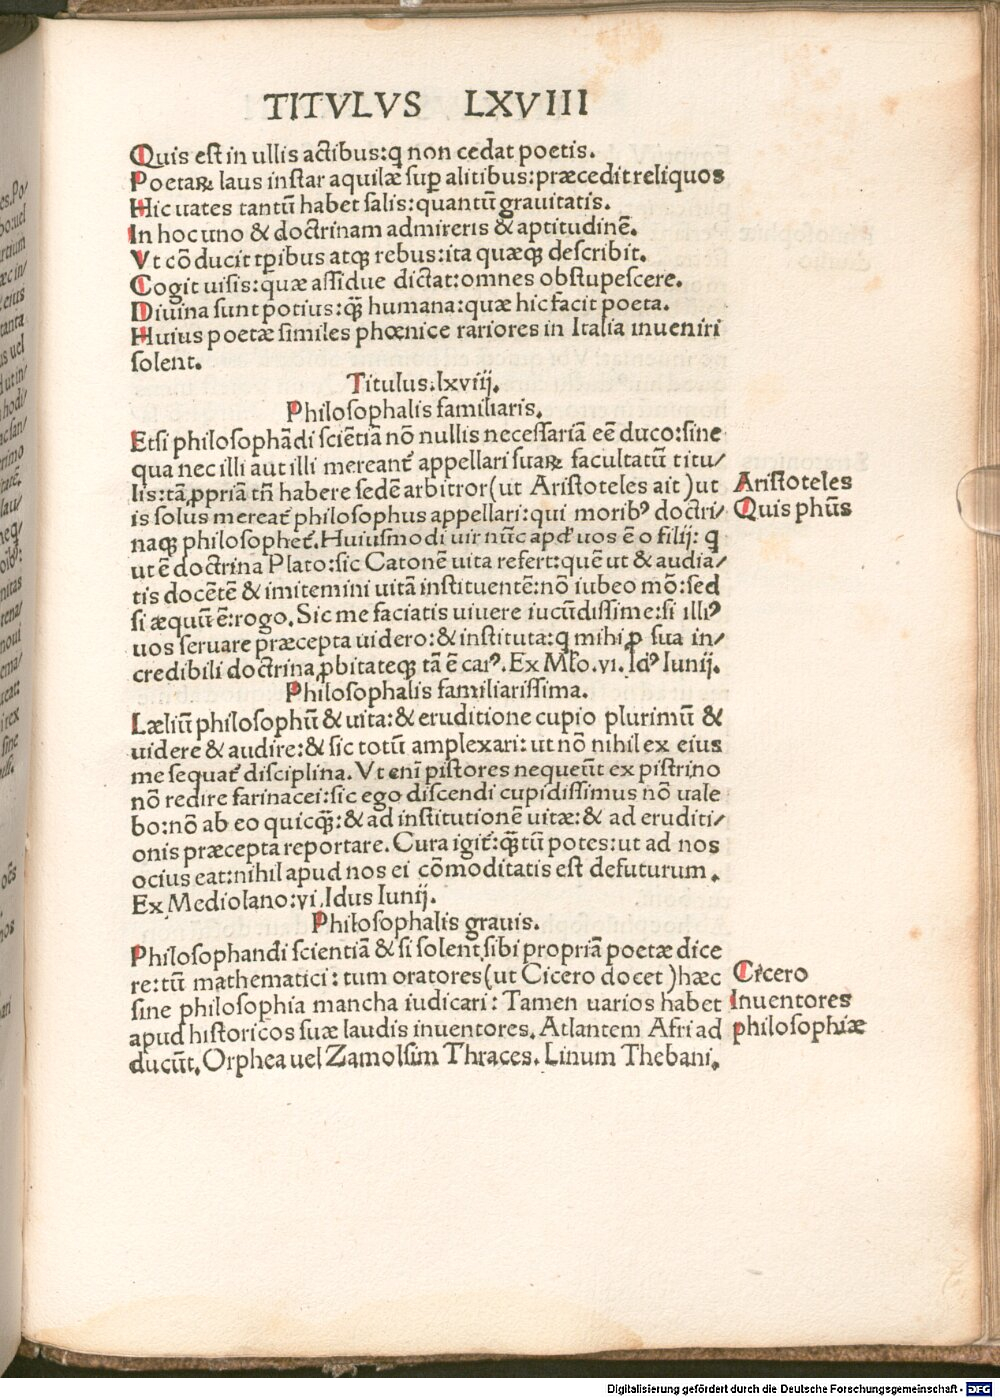 TITVLVS LXVIII
Quis est in ullis actibus:q non cedat poetis.
Poetaꝝ laus instar aquilæ sup̱ alitibus:præcedit reliquos
Hic uates tantū habet salis:quantū grauitatis.
In hoc uno & doctrinam admireris & aptitudinē.
Vt cōducit tp̄ibus atqꝫ rebus:ita quæqꝫ describit.
Cogit uisis:quæ assidue dictat:omnes obstupescere.
Diuina sunt potius:qꝫ̄ humana:quæ hic facit poeta.
Huius poetæ similes phœnice rariores in Italia inueniri
solent.
Titulus.lxviij.
Philosophalis familiaris.
Etsi philosophādi sciētiā nō nullis necessariā eē duco:sine
qua nec illi aut illi mereant᷑ appellari suaꝝ facultatū titu/
lis:tā ꝓpriā tn̄ habere sedē arbitror(ut Aristoteles ait)ut
is solus mereat᷑ philosophus appellari:qui moribꝰ doctri/
naqꝫ philosophet᷑.Huiusmodi uir nūc apd' uos ē o filij: q
ut ē doctrina Plato:sic Catonē uita refert:quē ut & audia/
tis docētē & imitemini uitā instituentē:nō iubeo mō:sed
si æquū ē:rogo.Sic me faciatis uiuere iucūdissime:si illiꝰ
uos seruare præcepta uidero:& instituta:q mihi ꝓ sua in/
credibili doctrina ꝓbitateqꝫ tā ē caiꝰ.Ex Mło.vi.Idꝰ Iunij.
Philosophalis familiarissima.
Læliū philosophū & uita:& eruditione cupio plurimū &
uidere & audire:& sic totū amplexari:ut nō nihil ex eius
me sequat᷑ disciplina.Vt enī pistores nequeūt ex pistrino
nō redire farinacei:sic ego discendi cupidissimus nō uale
bo:nō ab eo quicqꝫ̄:& ad institutionē uitæ:& ad eruditi/
onis præcepta reportare.Cura igit᷑:qꝫ̄tū potes:ut ad nos
ocius eat:nihil apud nos ei cōmoditatis est defuturum.
Ex Mediolano:vi.Idus Iunij.
Philosophalis grauis.
Philosophandi scientiā & si solent sibi propriā poetæ dice
re:tū mathematici:tum oratores(ut Cicero docet)hæc
sine philosophia mancha iudicari:Tamen uarios habet
apud historicos suæ laudis inuentores.Atlantem Afri ad
ducūt.Orphea uel Zamolsim Thraces.Linum Thebani.
Aristoteles
Quis phūs
Cicero
Inuentores
philosophiæ
Digitalisierung gefördert durch die Deutsche Forschungsgemeinschaft - DFG